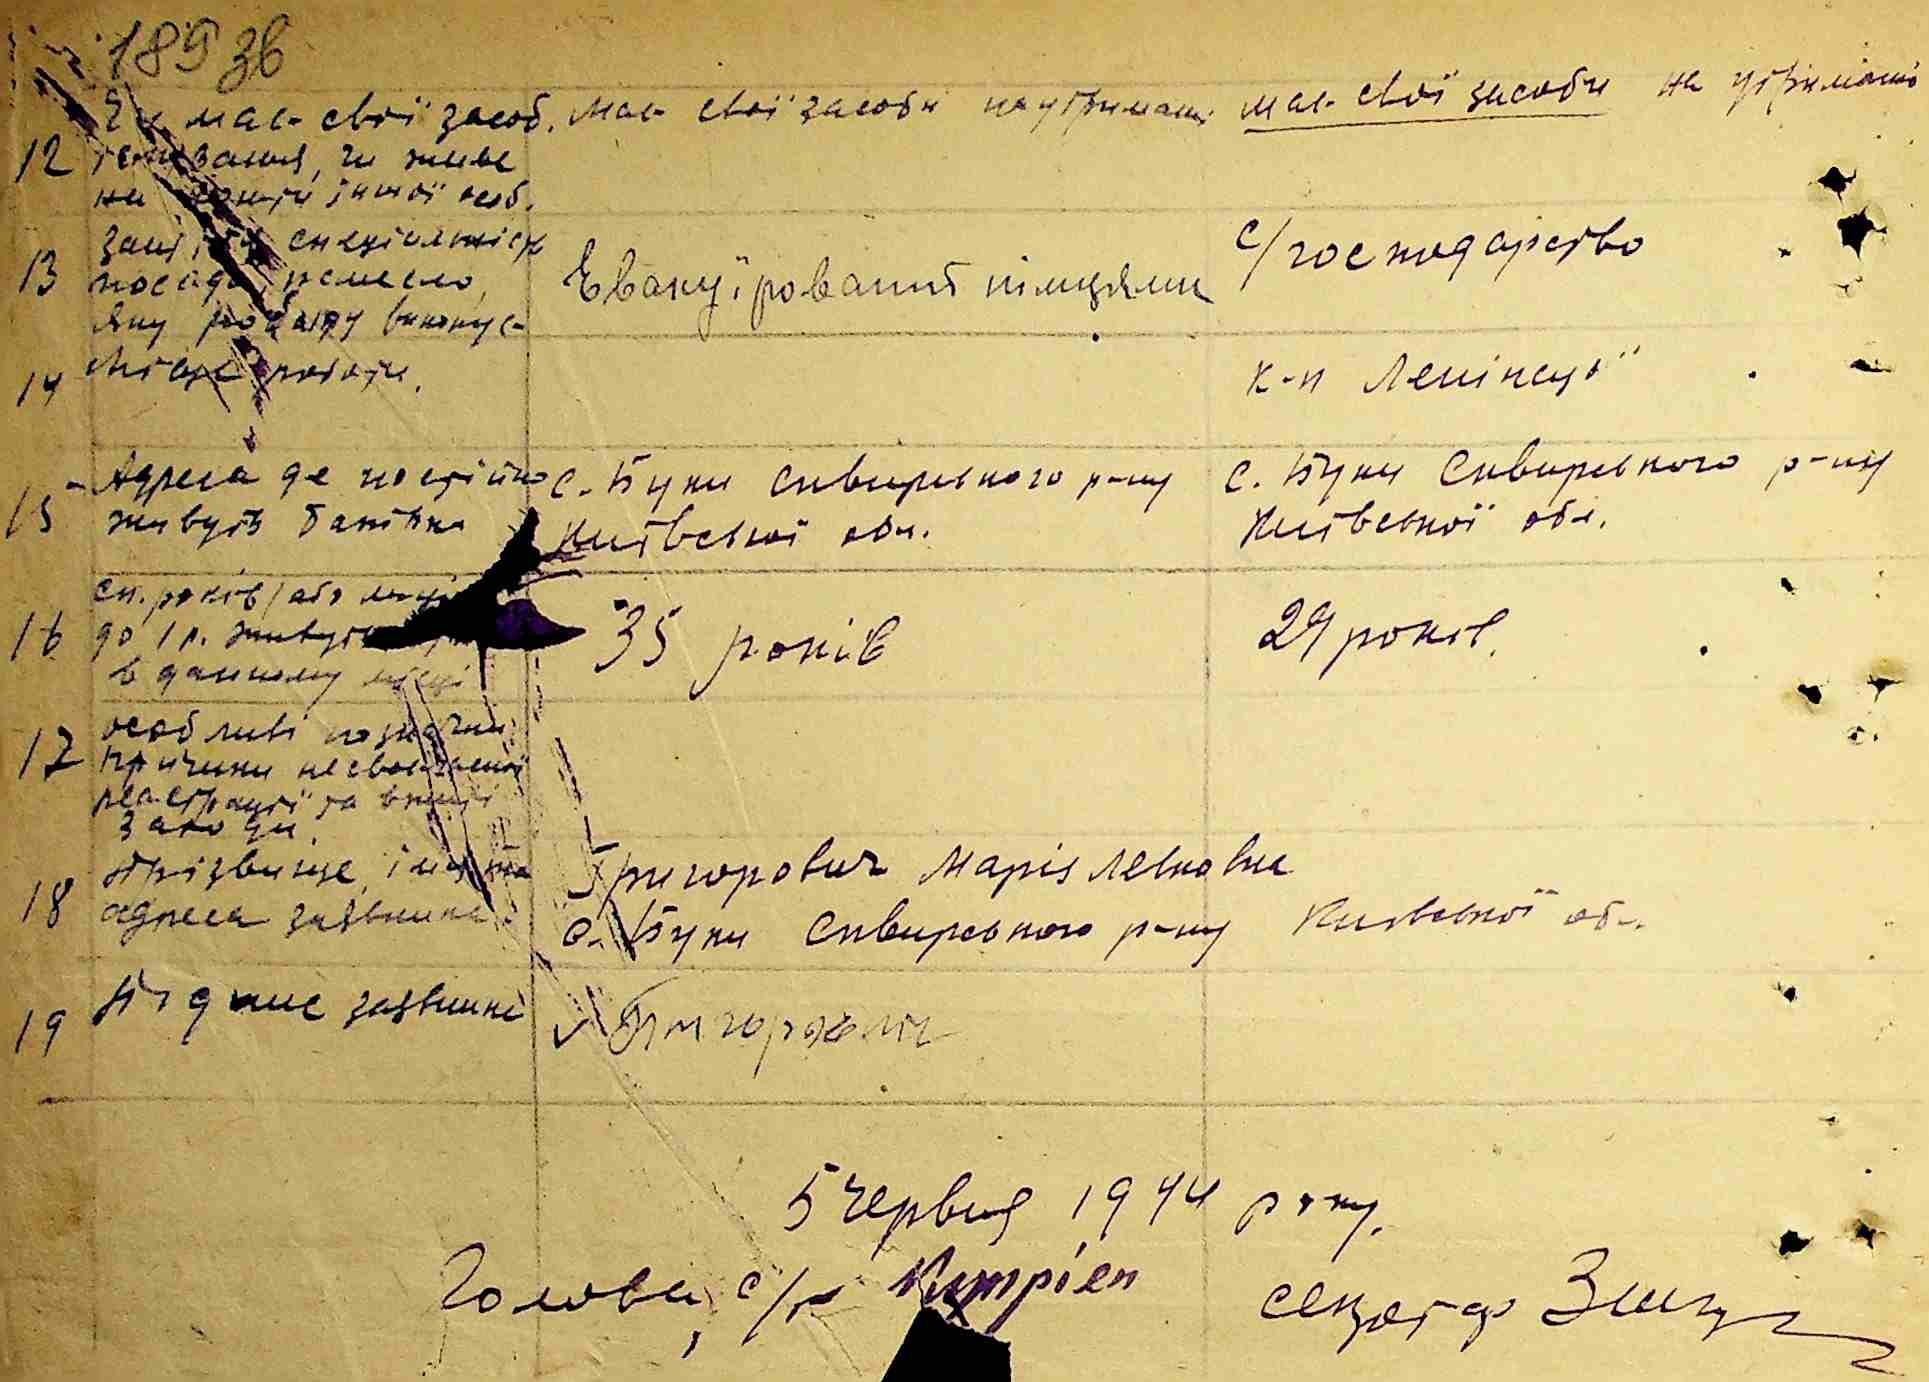 189 зв
Чи має свої засоб. має свої засоби на утримані має свої засоби на утримані
12 існування, чи живе
на кошти іншої особ.
13 Заняття спеціальність
посада, ремесло, Евакуїрований німцями с/господарство
яку роботу виконує
14 Місце роботи. к-п Ленінськ
15 Адреса де постійно с. Буки Сквирського р-ну с. Буки Сквирського р-ну
живуть батьки Київської обл. Київської обл.
16 ск. років /або місяц
до 1 р. живуть 35 років 29 років.
в данному місці
17 особливі позначки
причини несвоєчасної
реєстрації та вжиті
заходи.
18 Прізвище, імя та Григорович Марія Левковна
адреса заявника с. Буки Сквирського р-ну Київської обл.
19 Підпис заявника Григорович
5 червня 1944 року.
Голова с/р секретар